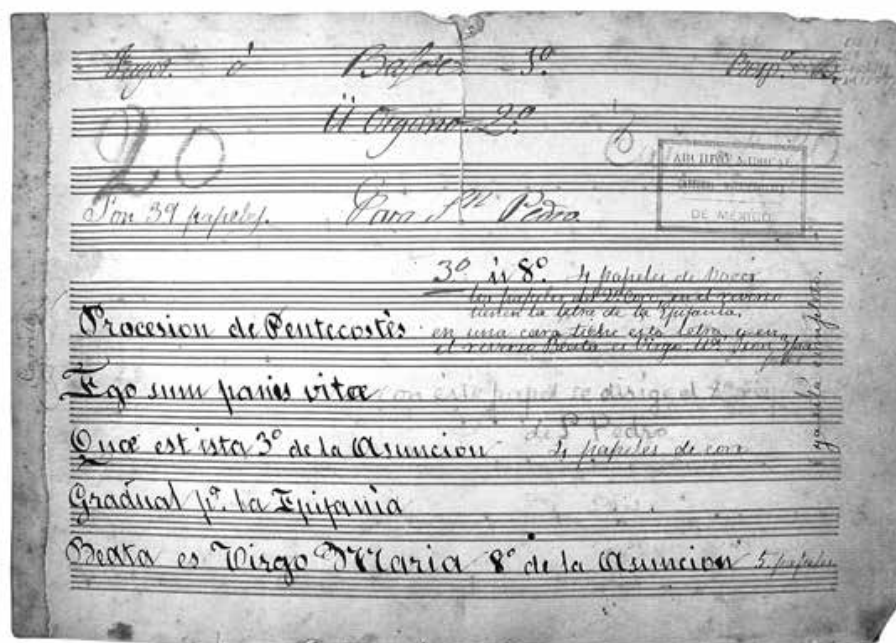 Fagot. ó Bajoxe 1º. Resp.º
U Organo 2º.
20
ARCHIVO MUSICAL
DE MEXICO
Son 39 papeles. Para Sn. Pedro.
3º ú 8º. 4 papeles de
los papeles del 2º Coro, en el reverso
tienen la letra de la Epifanía.
Procesion de Pentecostés en una cara tiene esta letra y en
el reverso Beata es Virgo Mª. Son 3
Ego sum panis vitæ con este papel se dirige el
de S. Pedro
Quæ est ista 3º de la Asuncion 4 papeles de coro
Gradual pª. la Epifania
Beata es Virgo Maria 8º de la Asuncion 5 papeles